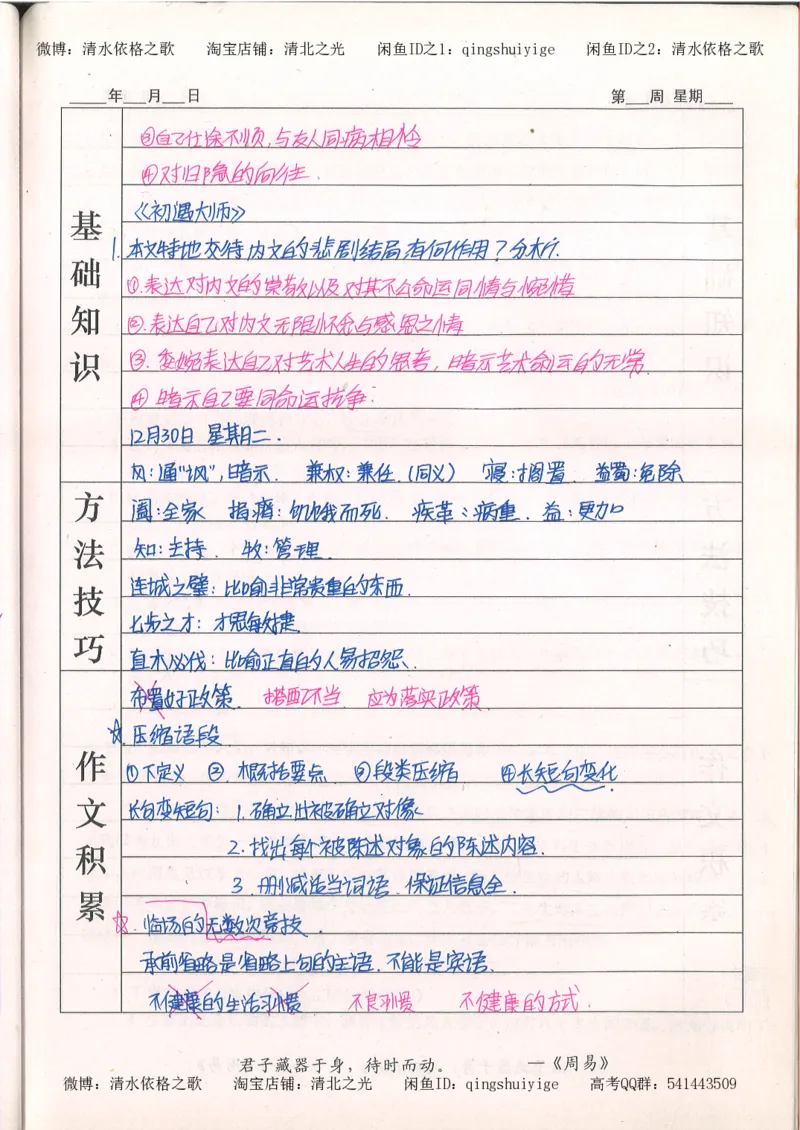 微博：清水依格之歌 淘宝店铺：清北之光 闲鱼ID之1：qingshuiyige 闲鱼ID之2：清水依格之歌
年 月 日 第 周 星期
③自己仕途不顺,与友人同病相怜
④对归隐的向往.
《初遇大师》
1.本文特地交待内文的悲剧结局有何作用？分析.
①.表达对内文的崇敬以及对其不公命运同情与惋惜
②.表达自己对内文无限怀念与感恩之情
③.委婉表达自己对艺术人生的思考,暗示艺术命运的无常.
④暗示自己要同命运抗争.
12月30日 星期二.
风:通"讽",暗示. 兼权:兼任.(同义) 寝:搁置. 蠲:免除
阖:全家 捐瘠:饥饿而死. 疾革:病重. 益:更加
知:主持. 牧:管理.
连城之璧:比喻非常贵重的东西.
七步之才:才思敏捷.
直木必伐:比喻正直的人易招怨.
布置好政策. 搭配不当. 应为落实政策.
☆.压缩语段
①下定义 ②.概括要点 ③段类压缩 ④长短句变化
长句变短句: 1.确立出被确立对像
2.找出每个被陈述对象的陈述内容.
3.删减适当词语.保证信息全.
☆.临场的无数次竞技.
承前省略是省略上句的主语.不能是宾语.
不健康的生活习惯 不良习惯 不健康的方式.
基础知识
方法技巧
作文积累
君子藏器于身，待时而动。 —《周易》
微博：清水依格之歌 淘宝店铺：清北之光 闲鱼ID：qingshuiyige 高考QQ群：541443509